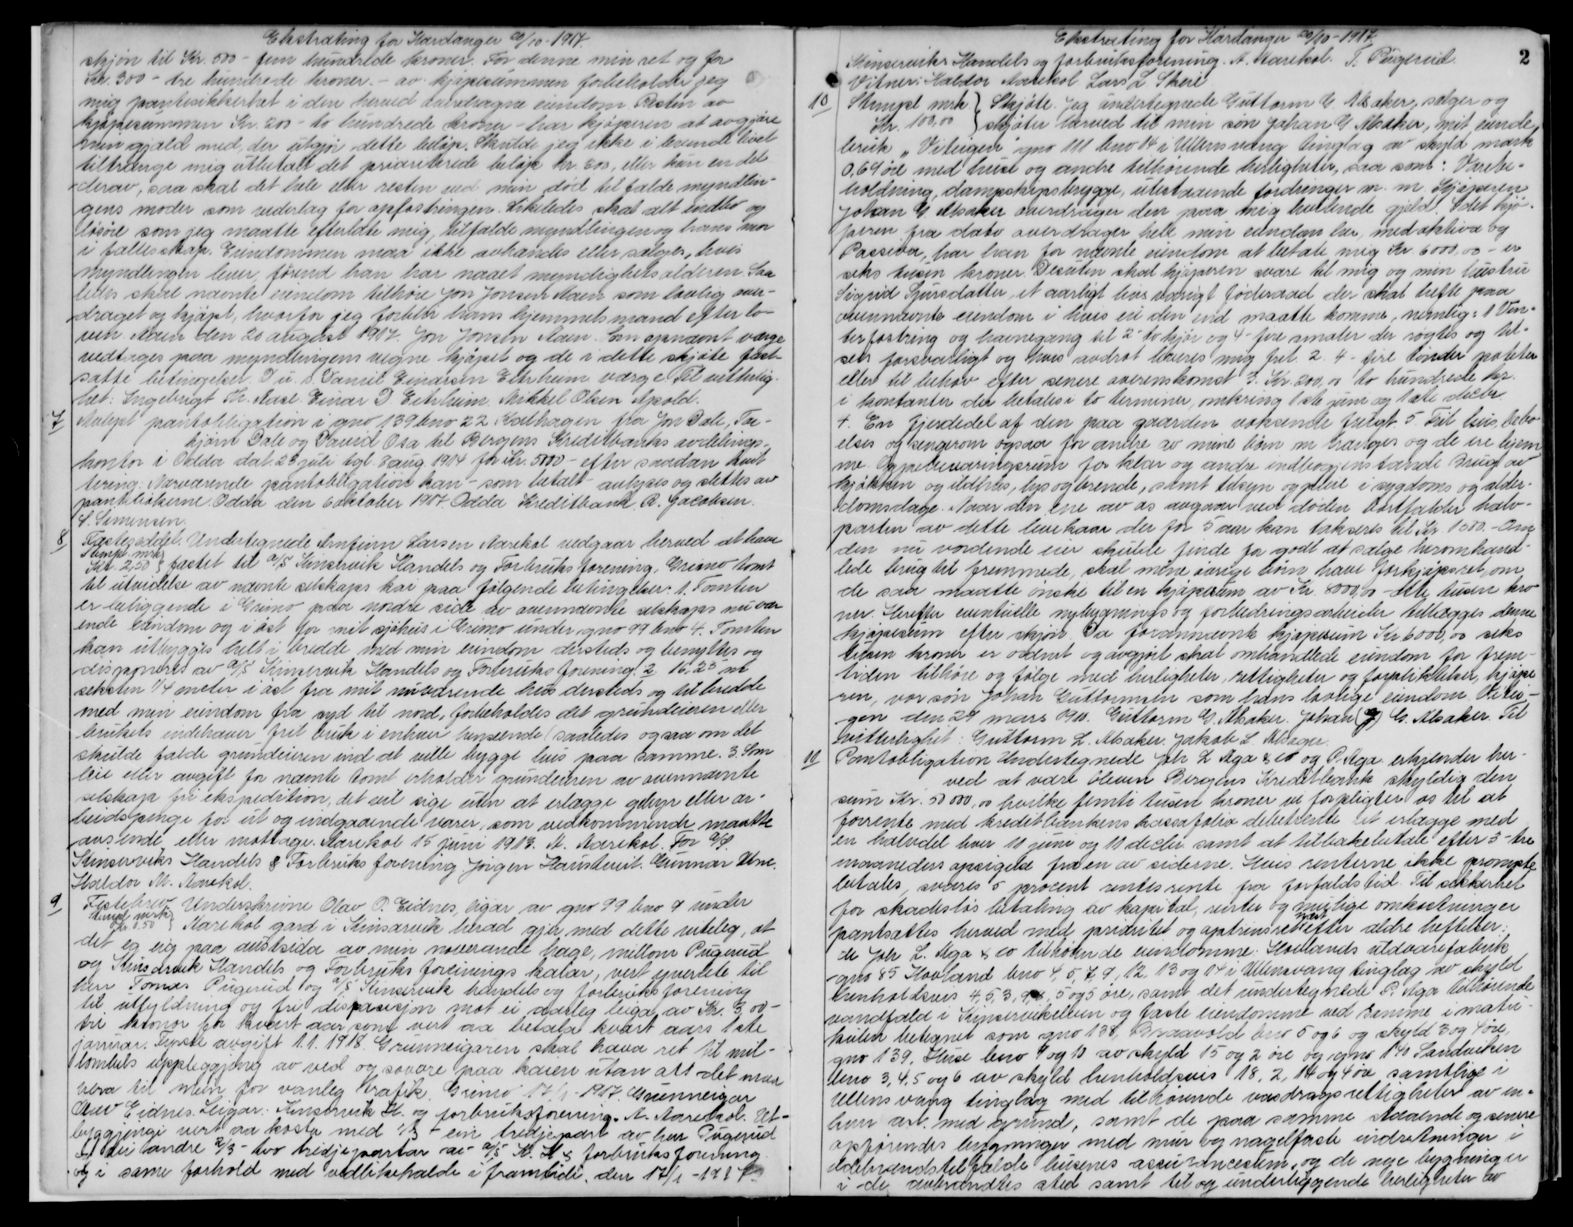 Ekstrating for Hardanger 20/10-1917.
skjøn til Kr. 500 - fem hundrede kroner. For denne min ret og for
Kr. 300 - tre hundrede kroner - av kjøpesummen forbeholder jeg
mig pantesikkerhet i den herved overdragne eiendom Resten av
kjøpesummen Kr. 200 - to hundrede kroner - har kjøperen at avgjøre
min gjæld med, der utgjør dette beløp. Skulde jeg ikke i levende livet
tiltrænge mig utbetalt det prioriterede beløp kr 300, eller kun en del
derav, saa skal det hele eller resten ved min død til falde myndlin-
gens moder som vederlag for opfostringen. Likeledes skal alt indbo og
løsøre som jeg maatte efterlate mig, tilfalde myndlingen og hans mor
i fællesskap. Eiendommen maa ikke avhændes eller sælges, hvis
myndlingen lever, førend han har naaet myndighetsalderen. Saa
ledes skal nævnte eiendom tilhøre Jon Jonsen Maen som lovlig over-
draget og kjøpt, hvorfor jeg forblir hans hjemmelsmand efter lo-
ven Maen den 20 august 1917. Jon Jonsen Maen. Som opnævnt værge
vedtages paa myndlingens vegne kjøpet og de i dette skjøte fast-
satte betingelser. D. u. s. Daniel Einarsen Eitrheim værge. Til vitterlig-
het: Ingebrigt K. Aase Einar D Eitrheim Mikkel Olsen Apold.
7 Avlyst pantobligation i gno 139 bno 22 Kalhagen fra Jon Dale, Tor-
bjørn Dale og David Osa til Bergens Kreditbanks avdelings-
kontor i Odda dat 28 juli tgl. 3 aug 1904 for Kr. 5000 - efter saadan kvit
tering: Nærværende pantobligation kan - som betalt - avlyses og slettes av
pantebøkerne. Odda den 6 oktober 1917. Odda Kreditbank A. Jacobsen.
S. Simensen.
8 Fæsteseddel. Undertegnede Arnfinn Larsen Aarekol vedgaar herved at have
Stempl. mrk Kr. 2,50 } fæstet til A/S Kinservik Handels og Forbruks forening. Grimo tomt
til utvidelse av nævnte selskaps kai paa følgende betingelser. 1. Tomten
er beliggende i Grimo paa nordre side av ovennævnte selskaps nuvær
ende eiendom og i øst for mit sjøhus i Grimo under gno 99 bno 4. Tomten
kan utbygges helt i bredde med min eiendom dersteds og benyttes og
disponeres av A/S Kinservik Handels og Forbruksforening. 2 16.25 m
seksten 1/4 meter i øst fra mit nuværende hus dersteds og til bredde
med min eiendom fra syd til nord, forbeholdes det grundeieren eller
brukets indehaver frit bruk i enhver henseende, saaledes ogsaa om det
skulde falde grundeieren ind at ville bygge hus paa samme. 3. Som
leie eller avgift for nævnte tomt erholder grundeieren av ovennævnte
selskap fri ekspedition, det vil sige uten at erlægge gebyr eller ar
beidspenge for ut og indgaaende varer, som vedkommende maatte
avsende eller mottage. Aarekol 15 juni 1913. A. Aarekol. For A/S
Kinserviks Handels & Forbruks forening Jørgen Haustveit. Gunnar Utne
Haldor M. Aarekol.
9 Festebrev. Underskrivne Olav P. Eidnes, eigar av gno 99 bno 9 under
Stempl. merk Kr 0.50 } Aarekol gard i Kinsarvik herad gjev med dette uteleg, at
det eg eig paa austsida av min noverande hage, millom Pugerud
og Kinsarvik Handels og Forbruks foreinings kaiar, vert yverlete til
herr Tomas Pugerud og A/S Kinsarvik handels og forbruksforening
til utfyldning og fri disposisjon mot ei aarleg leiga av Kr. 3,00 -
tri kronor for kvart aar, som vert aa betala kvart aars 1ste
januar. Fyrste avgift 1.1. 1918. Grunneigaren skal hava ret til mil-
lombels uppleggjing av ved og sovore paa kaien utan att det maa
vera til mein for vanleg trafik. Grimo 17/1 - 1917. Grunneigar
Olav Eidnes. Leigar: Kinsarvik H. og forbruksforening. A. Aarekol. Ut-
byggjingi vert aa kosta med 1/3 - ein tredjepart av herr Pugerud
og dei andre 2/3 - tvo tridjepartar av A/S K. H & forbruksforening
og i same forhold med vedlikehalde i framtidi. den 17/1 - 1917
Ekstrating for Hardanger 20/10-1917.
2
Kinserviks Handels og forbruksforening. A. Aarekol. T. Pugerud.
Vitner: Haldor Aarekol Lars L Skeie
10 Stempel merk Kr. 100,00 } Skjøte. Jeg undertegnede Guttorm G Alsaker, sælger og
skjøter herved til min søn Johan G Alsaker, mit eiende
bruk „Vikingen gno 111 bno 14 i Ullensvang tinglag av skyld mark
0,69 øre med huse og andre tilhørende herligheter, saa som: Varebe-
holdning, dampskipsbrygge, utestaaende fordringer m. m. Kjøperen
Johan G Alsaker overdrager den paa mig heftende gjæld. Idet kjø-
peren fra dato overdrager hele min eiendom her, med aktiva og
Passiva, har han for nævnte eiendom at betale mig Kr 6000,00 - er
seks tusen kroner. Desuten skal kjøperen svare til mig og min hustru
Sigrid Sjursdatter et aarligt livsvarigt føderaad der skal hefte paa
ovennævnte eiendom i hvis eie den end maatte komme, nemlig: 1 Vin-
terfostring og havnegang til 2 - to kjør og 4 - fire smaler der røgtes og til-
sees forsvarligt og hvis avdrot leveres mig frit. 2. 4 - fire tønder poteter
eller til behov efter senere overenskomst 3. Kr. 200,00 to hundrede kr.
i kontanter der betales i to terminer, omkring 1ste juni og 1ste decbr.
4. En fjerdedel af den paa gaarden voksende frugt. 5. Frit hus, bebo-
else og sengerom ogsaa for andre av mine børn m trænges og de ere hjem
me. Oppebevaringsrum for klær og andre indbogjenstande brug av
kjøkken og ildhus, lys og brænde, samt tilsyn og pleie i sygdoms og alder-
domsdage. Naar den ene av os avgaar ved døden bortfalder halv-
parten av dette levekaar der for 5 aar kan takseres til Kr. 1000. - Om
den nu vordende eier skulde finde for godt at sælge heromhand-
lede brug til fremmede, skal mine øvrige børn have forkjøpsret, om
de saa maatte ønske til en kjøpesum av Kr 8000,00 - otte tusen kro
ner. Herefter eventuelle nybygnings og forbedringsarbeider tillægges denne
kjøpesum efter skjøn. Da forannævnte kjøpesum Kr. 6000,00 seks
tusen kroner er ordnet og avgjort skal omhandlede eiendom for frem-
tiden tilhøre og følge med herligheter, rettigheter og forpliktelser, kjøpe
ren, vor søn Johan Guttormsen som hans lovlige eiendom Vikin-
gen den 29 mars 1910. Guttorm G. Alsaker. Johan (G) G. Alsaker. Til
vitterlighet: Guttorm L. Alsaker Jakob L. Alsaker.
11 Pantobligation Undertegnede Johs L Aga & co og P. Aga erkjender her-
ved at være bleven Bergens Kreditbank skyldig den
sum Kr. 50 000,00 hvilke femti tusen kroner vi forpligter os til at
forrente med kreditbankens kassafolio debetrente at erlægge med
en halvdel hver 11 juni og 11 decbr samt at tilbakebetale efter 3 - tre
maaneders opsigelse fra en av siderne. Hvis renterne ikke prompte
betales, svares 5 procent rentesrente fra forfaldstid. Til sikkerhet
for skadesløs betaling av kapital, renter og mulige omkostninger
pantsættes herved med prioritet og optrinsret næst efter ældre heftelser:
de Johs L. Aga & co tilhørende eiendomme: Hovlands uldvarefabrik
gno 85 Hovland bno 4, 5, 7, 9, 12, 13 og 14 i Ullensvang tinglag av skyld
henholdsvis 4, 5, 3, 5 og 5 øre, samt det undertegnede P. Aga tilhørende
vandfald i Kinservikelven og faste eiendomme ved samme i matri-
kulen betegnet som gno 138, Braavold bno 5 og 6 og skyld 3 og 4 øre,
gno 139, Huse bno 9 og 10 av skyld 15 og 2 øre og gno 140 Sandviken
bno 3, 4, 5 og 6 av skyld henholdsvis 18, 2, 14 og 4 øre samtlige i
Ullensvang tinglag med tilhørende vasdragsrettigheter av en-
hver art, med grund, samt de paa samme staaende og senere
opførendes bygninger med mur og nagelfaste indretninger i
ildebrandstilfælde husenes assurancesum, og de nye bygninger
i de avbrændtes sted samt til og underliggende herligheter av